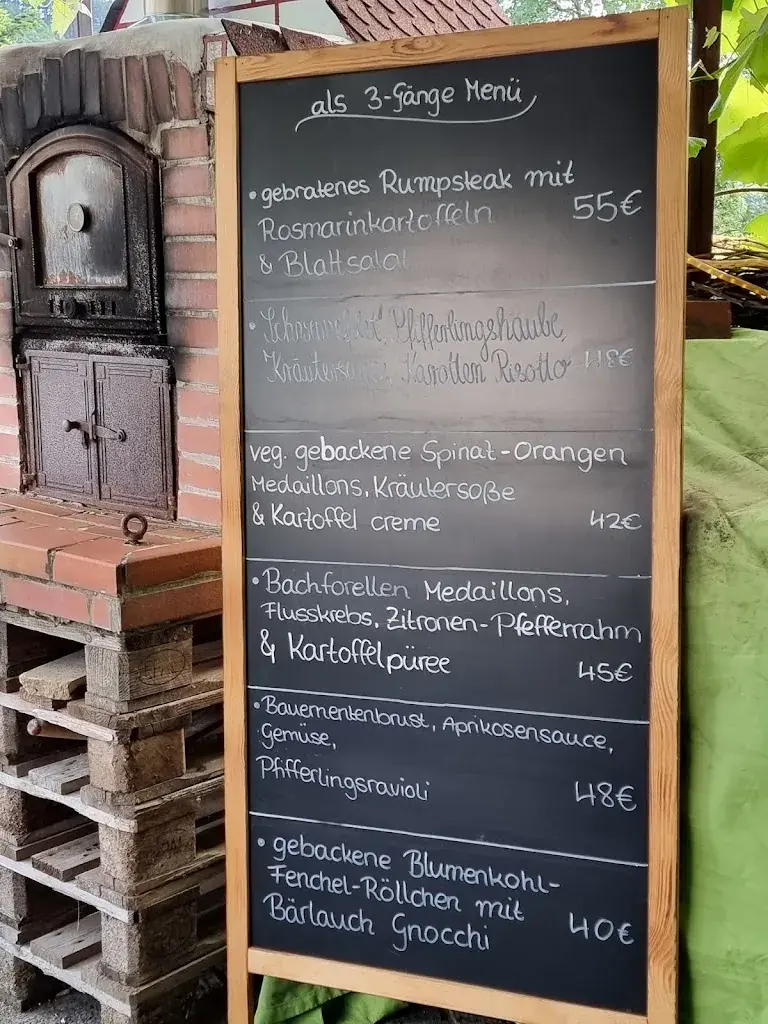 als 3-Gänge Menü
• gebratenes Rumpsteak mit
Rosmarinkartoffeln 55€
& Blattsalat
• Pfifferlingshaube,
Karotten Risotto 48€
veg. gebackene Spinat-Orangen
Medaillons, Kräutersoße
& Kartoffel creme 42€
• Bachforellen Medaillons,
Flusskrebs, Zitronen-Pfefferrahm
& Kartoffelpüree 45€
• Bauernentenbrust, Aprikosensauce,
Gemüse,
Pfifferlingsravioli 48€
• gebackene Blumenkohl-
Fenchel-Röllchen mit
Bärlauch Gnocchi 40€